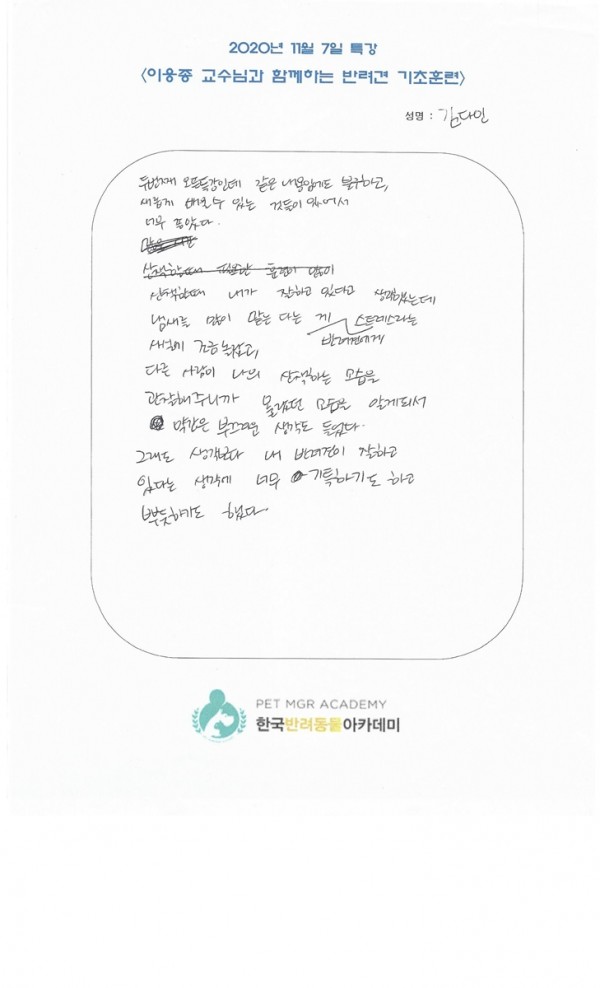 2020년 11월 7일 특강
<이웅종 교수님과 함께하는 반려견 기초훈련>
성명 : 김다인
두번째 오프특강인데 같은 내용임에도 불구하고,
새롭게 배울 수 있는 것들이 있어서
너무 좋았다.
산책할때 훈련이 많이
산책할때 내가 잘하고 있다고 생각했는데
냄새를 많이 맡는 다는 게 반려견에게 스트레스라는
새하게 조금 놀랐고,
다른 사람이 나의 산책하는 모습을
관찰해주니까 몰랐던 모습을 알게되서
약간은 부끄러운 생각도 들었다.
그래도 생각보다 내 반려견이 잘하고
있다는 생각에 너무 기특하기도 하고
뿌듯하기도 했다.
PET MGR ACADEMY
한국반려동물아카데미